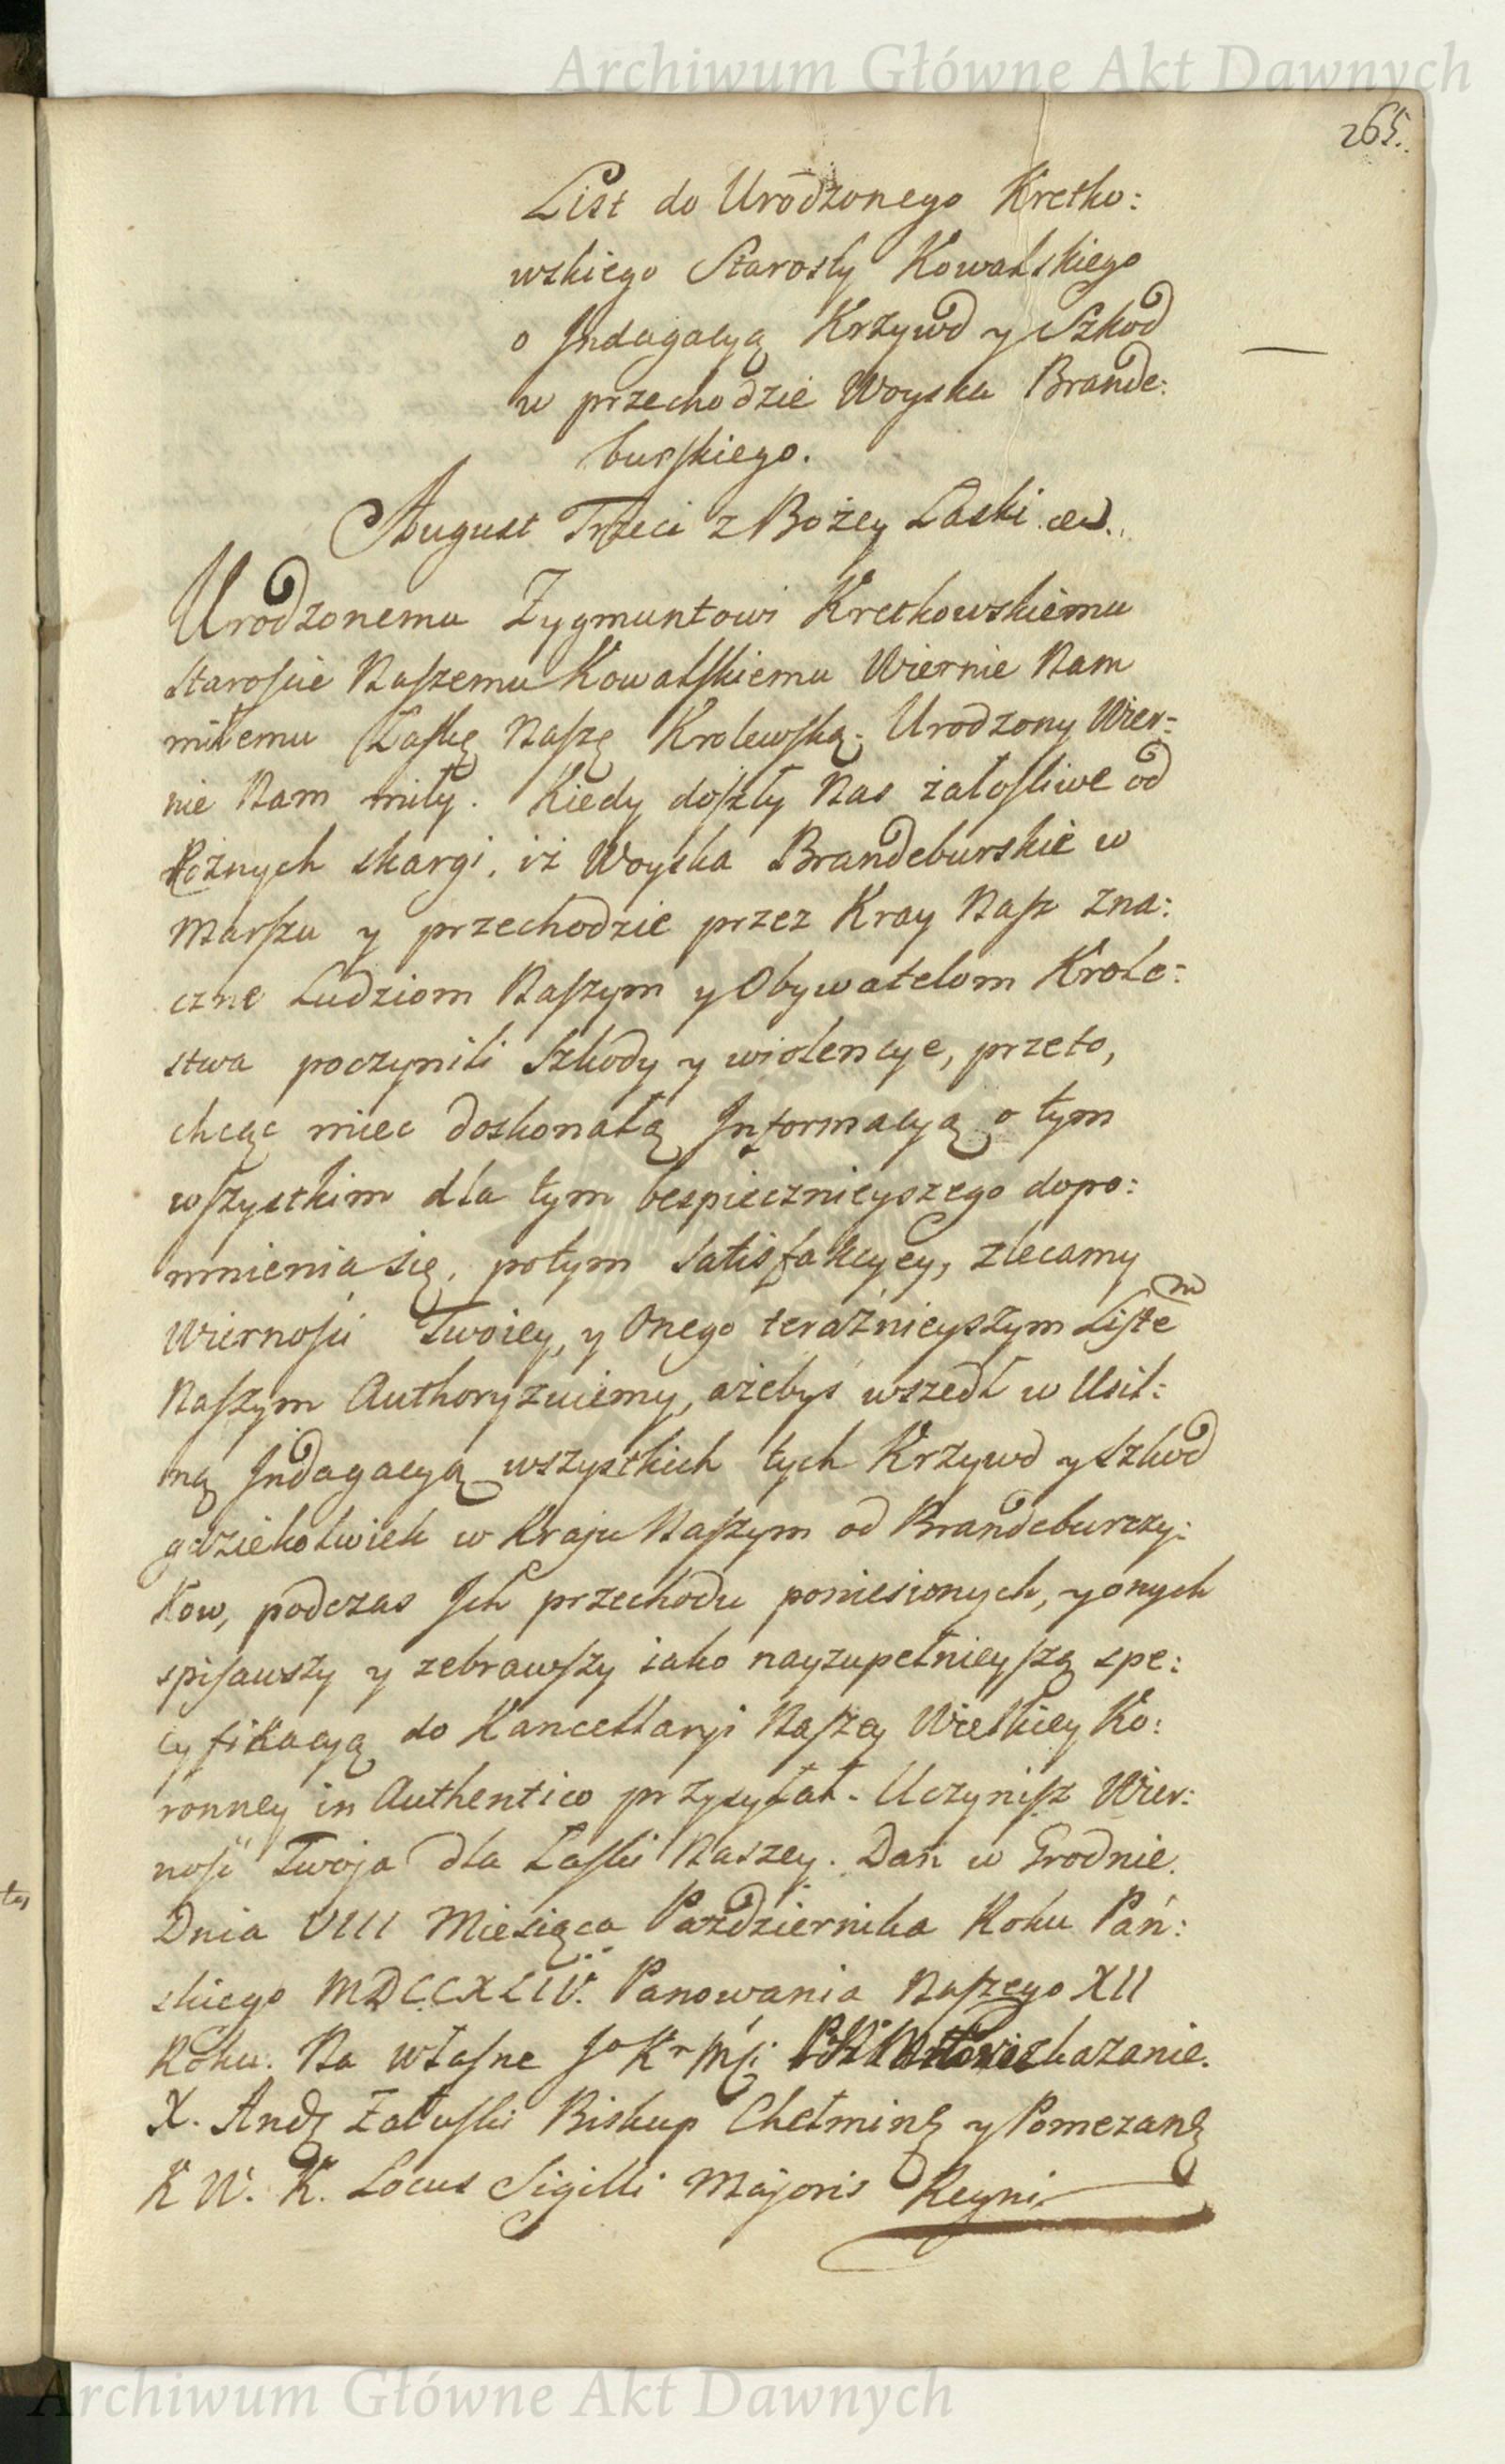 Archiwum Główne Akt Dawnych
265.
List do Urodzonego Kretko:
wskiego Starosty Kowalskiego
o Indagacyą Krzywd y Szkod
w przechodzie Woyska Brande:
burskiego.
August Trzeci z Bożey Łaski etc.
Urodzonemu Zygmuntowi Kretkowskiemu
Staroście Naszemu Kowalskiemu Wiernie Nam
miłemu Łaskę Naszę Krolewską. Urodzony Wier=
nie Nam miły. Kiedy doszły Nas żałosliwe od
Rożnych skargi, iż Woyska Brandeburskie w
Marszu y przechodzie przez Kray Nasz zna:
czne Ludziom Naszym y Obywatelom Krole:
stwa poczynili Szkody y wiolencye, przeto,
chcąc miec doskonałą Informacyą o tym
wszystkim dla tym bespiecznieyszego dopo:
mnienia się, potym Satisfakcyey, zlecamy
Wiernosci Twoiey, y Onego teraźnieyszym Listem
Naszym Authoryzuiemy, ażebyś wszedł w Usil:
ną Indagacyą wszystkich tych Krzywd y Szkod
gdziekolwiek w Kraju Naszym od Brandeburczy:
kow, podczas Ich przechodu poniesionych, y onych
spisawszy y zebrawszy iako nayzupełnieyszą spe:
cyfikacyą do Kancellaryi Naszey Wielkiey Ko:
ronney in Authentico przysyłał. Uczynisz Wier:
nosć Twoja dla Łaski Naszey. Dan w Grodnie.
Dnia VIII Miesiąca Października Roku Pań:
skiego MDCCXLIV. Panowania Naszego XII
Roku. Na własne Jo Kr Mści rozkazanie.
X. Andz Załuski Biskup Chełminz y Pomezanz
K W. K. Locus Sigilli Majoris Regni
Archiwum Główne Akt Dawnych